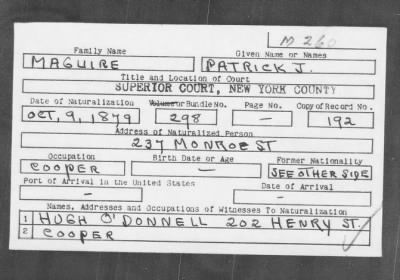 M 260
Family Name Given Name or Names
MAGUIRE PATRICK J.
Title and Location of Court
SUPERIOR COURT, NEW YORK COUNTY
Date of Naturalization Volume or Bundle No. Page No. Copy of Record No.
OCT, 9, 1879 298 — 192
Address of Naturalized Person
237 MONROE ST
Occupation Birth Date or Age Former Nationality
COOPER — SEE OTHER SIDE
Port of Arrival in the United States Date of Arrival
— —
Names, Addresses and Occupations of Witnesses To Naturalization
1 HUGH O'DONNELL 202 HENRY ST.
2 COOPER